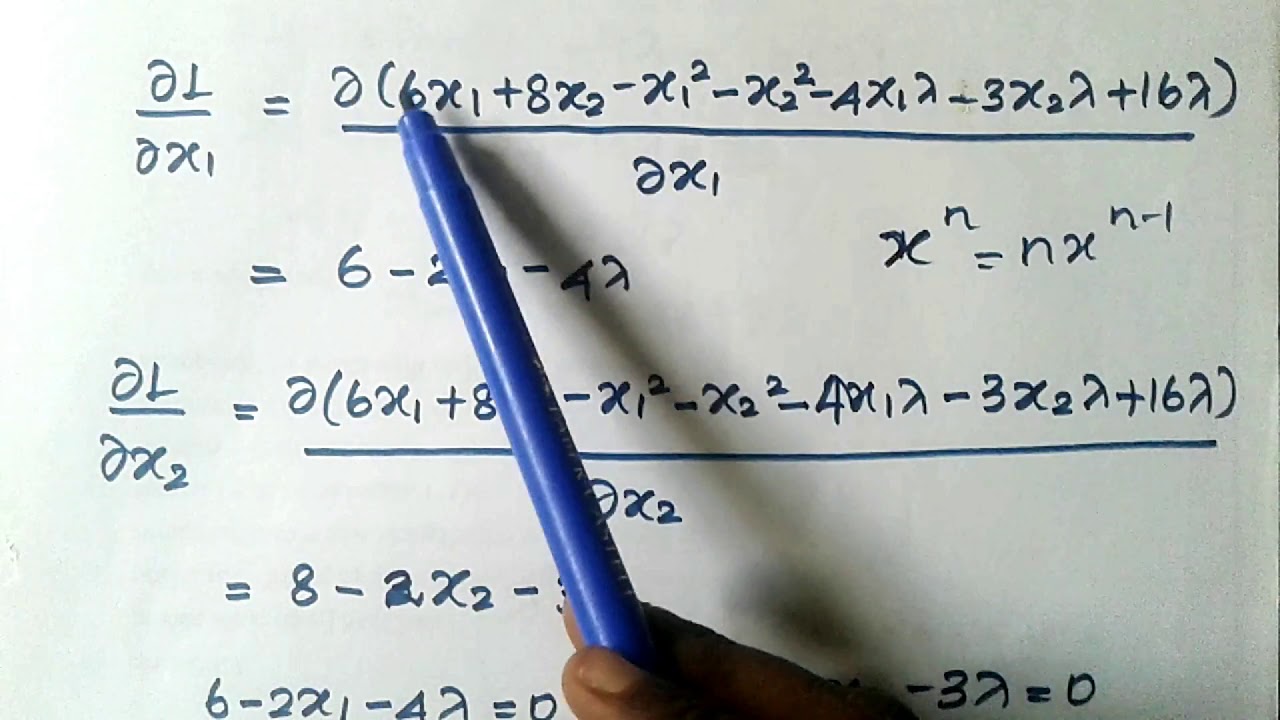 ∂L/∂x₁ = ∂(6x₁+8x₂-x₁²-x₂²-4x₁λ-3x₂λ+16λ)/∂x₁
xⁿ = nxⁿ⁻¹
= 6-2 -4λ
∂L/∂x₂ = ∂(6x₁+8 -x₁²-x₂²-4x₁λ-3x₂λ+16λ)/∂x₂
= 8-2x₂-
6-2x₁-4λ=0 -3λ=0